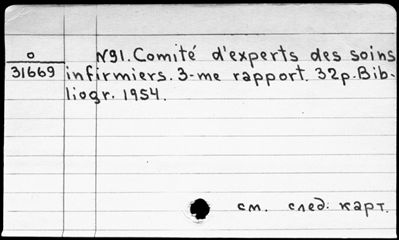 о
31669
№91. Comité d'experts des soins
infirmiers. 3-me rapport. 32p. Bib-
liogr. 1954.
см. след. карт.